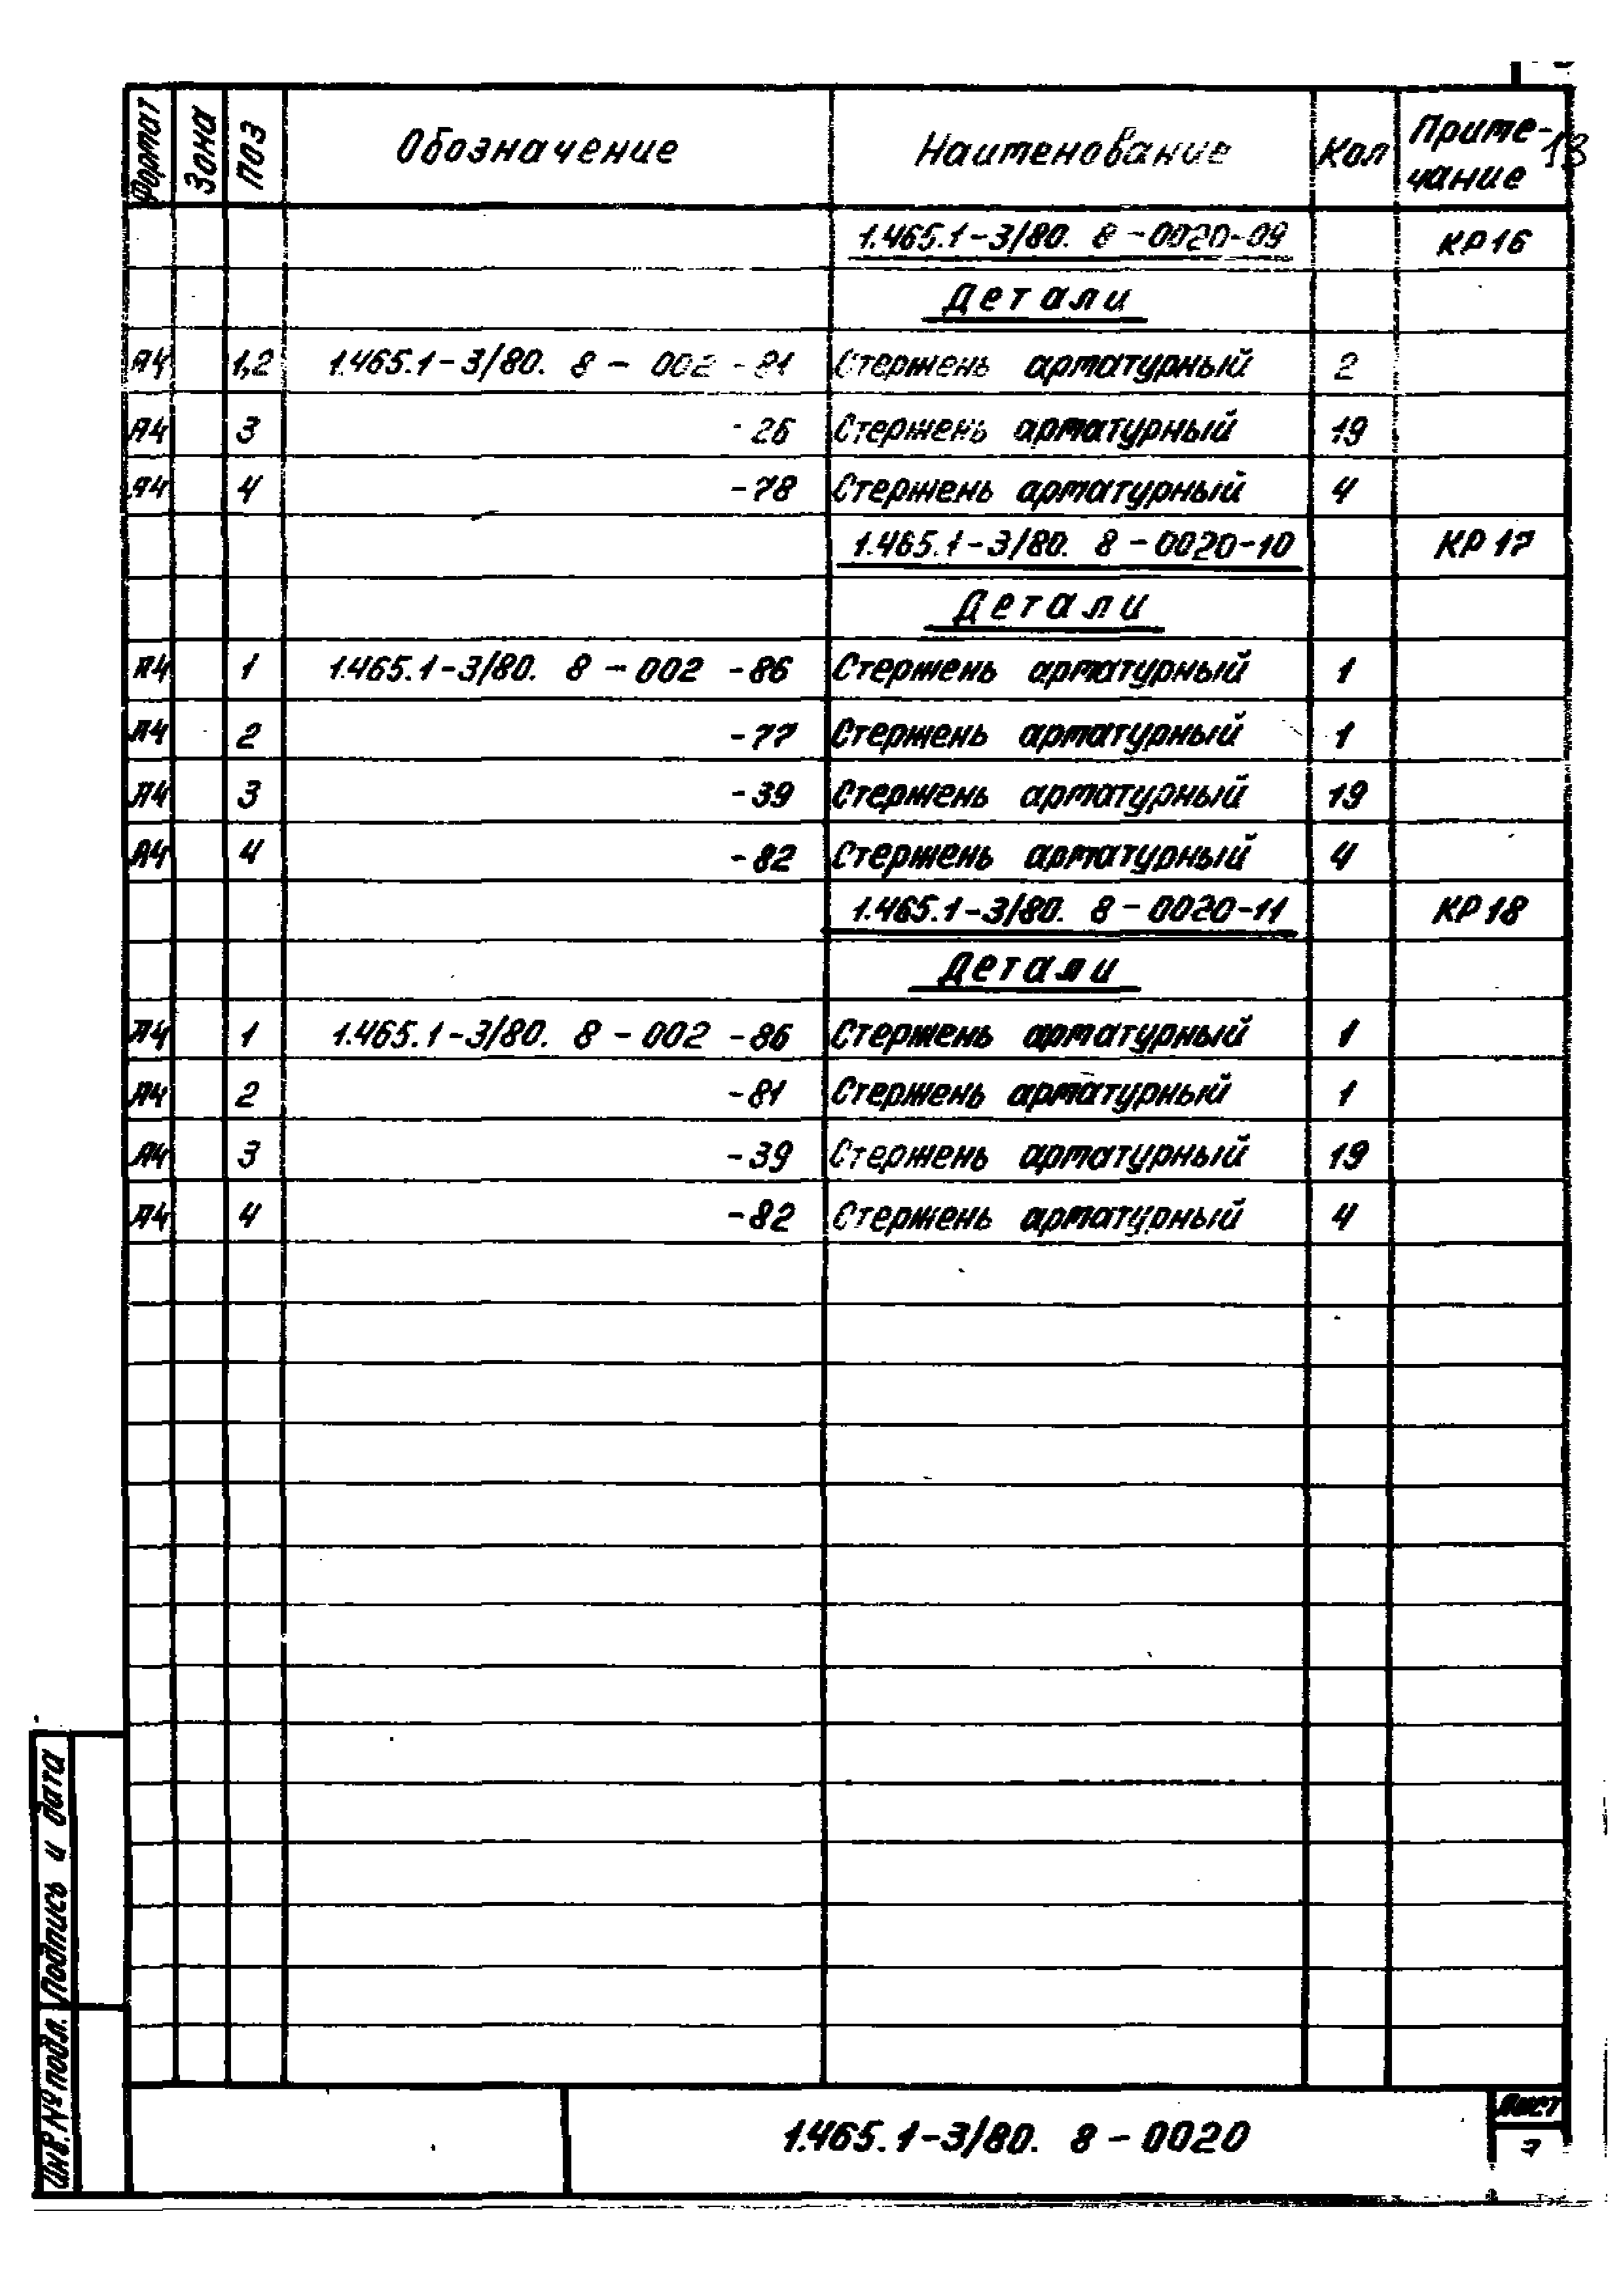 13
Формат Зона Поз Обозначение Наименование Кол Приме-чание
1.465.1-3/80. 8-0020-09 КР16
Детали
А4 1,2 1.465.1-3/80. 8-002 -81 Стержень арматурный 2
А4 3 -26 Стержень арматурный 19
А4 4 -78 Стержень арматурный 4
1.465.1-3/80. 8-0020-10 КР17
Детали
А4 1 1.465.1-3/80. 8-002 -86 Стержень арматурный 1
А4 2 -77 Стержень арматурный 1
А4 3 -39 Стержень арматурный 19
А4 4 -82 Стержень арматурный 4
1.465.1-3/80. 8-0020-11 КР18
Детали
А4 1 1.465.1-3/80. 8-002 -86 Стержень арматурный 1
А4 2 -81 Стержень арматурный 1
А4 3 -39 Стержень арматурный 19
А4 4 -82 Стержень арматурный 4
Подпись и дата
Инв. № подл.
1.465.1-3/80. 8-0020
Лист
7